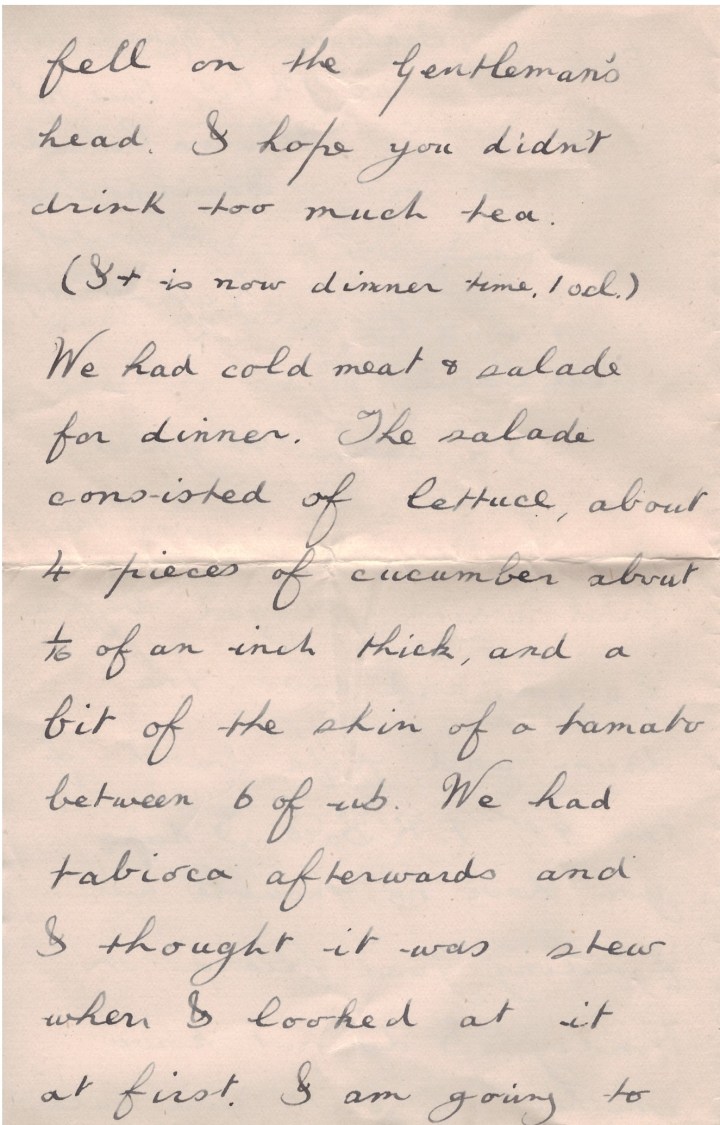 fell on the Gentleman's
head. I hope you didn't
drink too much tea.
(It is now dinner time, 1 ocl.)
We had cold meat & salade
for dinner. The salade
consisted of lettuce, about
4 pieces of cucumber about
1/16 of an inch thick, and a
bit of the skin of a tamato
between 6 of us. We had
tabioca afterwards and
I thought it was stew
when I looked at it
at first. I am going to